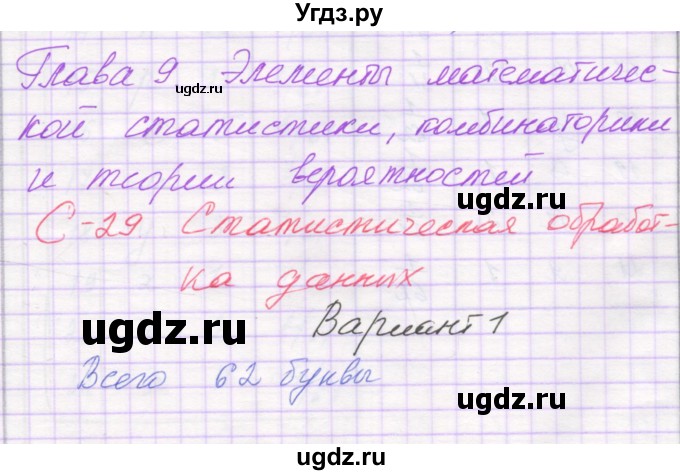 Угдз.ру
Глава 9 Элементы математичес-
кой статистики, комбинаторики
и теории вероятностей
С-29 Статистическая обработ-
ка данных
Вариант 1
Всего 62 буквы
©ugdz.ru
ugdz.ru
ugdz.ru
ugdz.ru
ugdz.ru